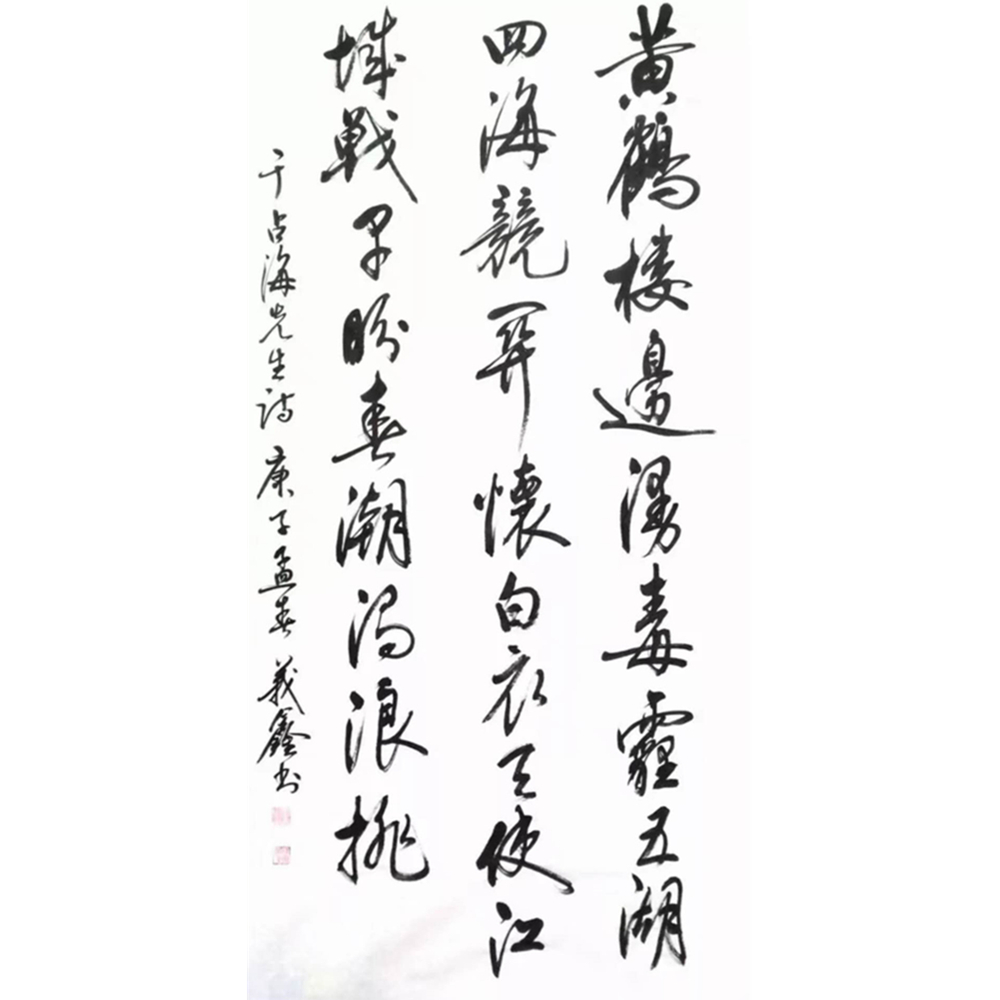 黄鶴樓邊漫毒霾五湖
四海競開懷白衣天使江
城戰早盼春潮濁浪排
于占海先生詩 庚子孟春 義鑫书